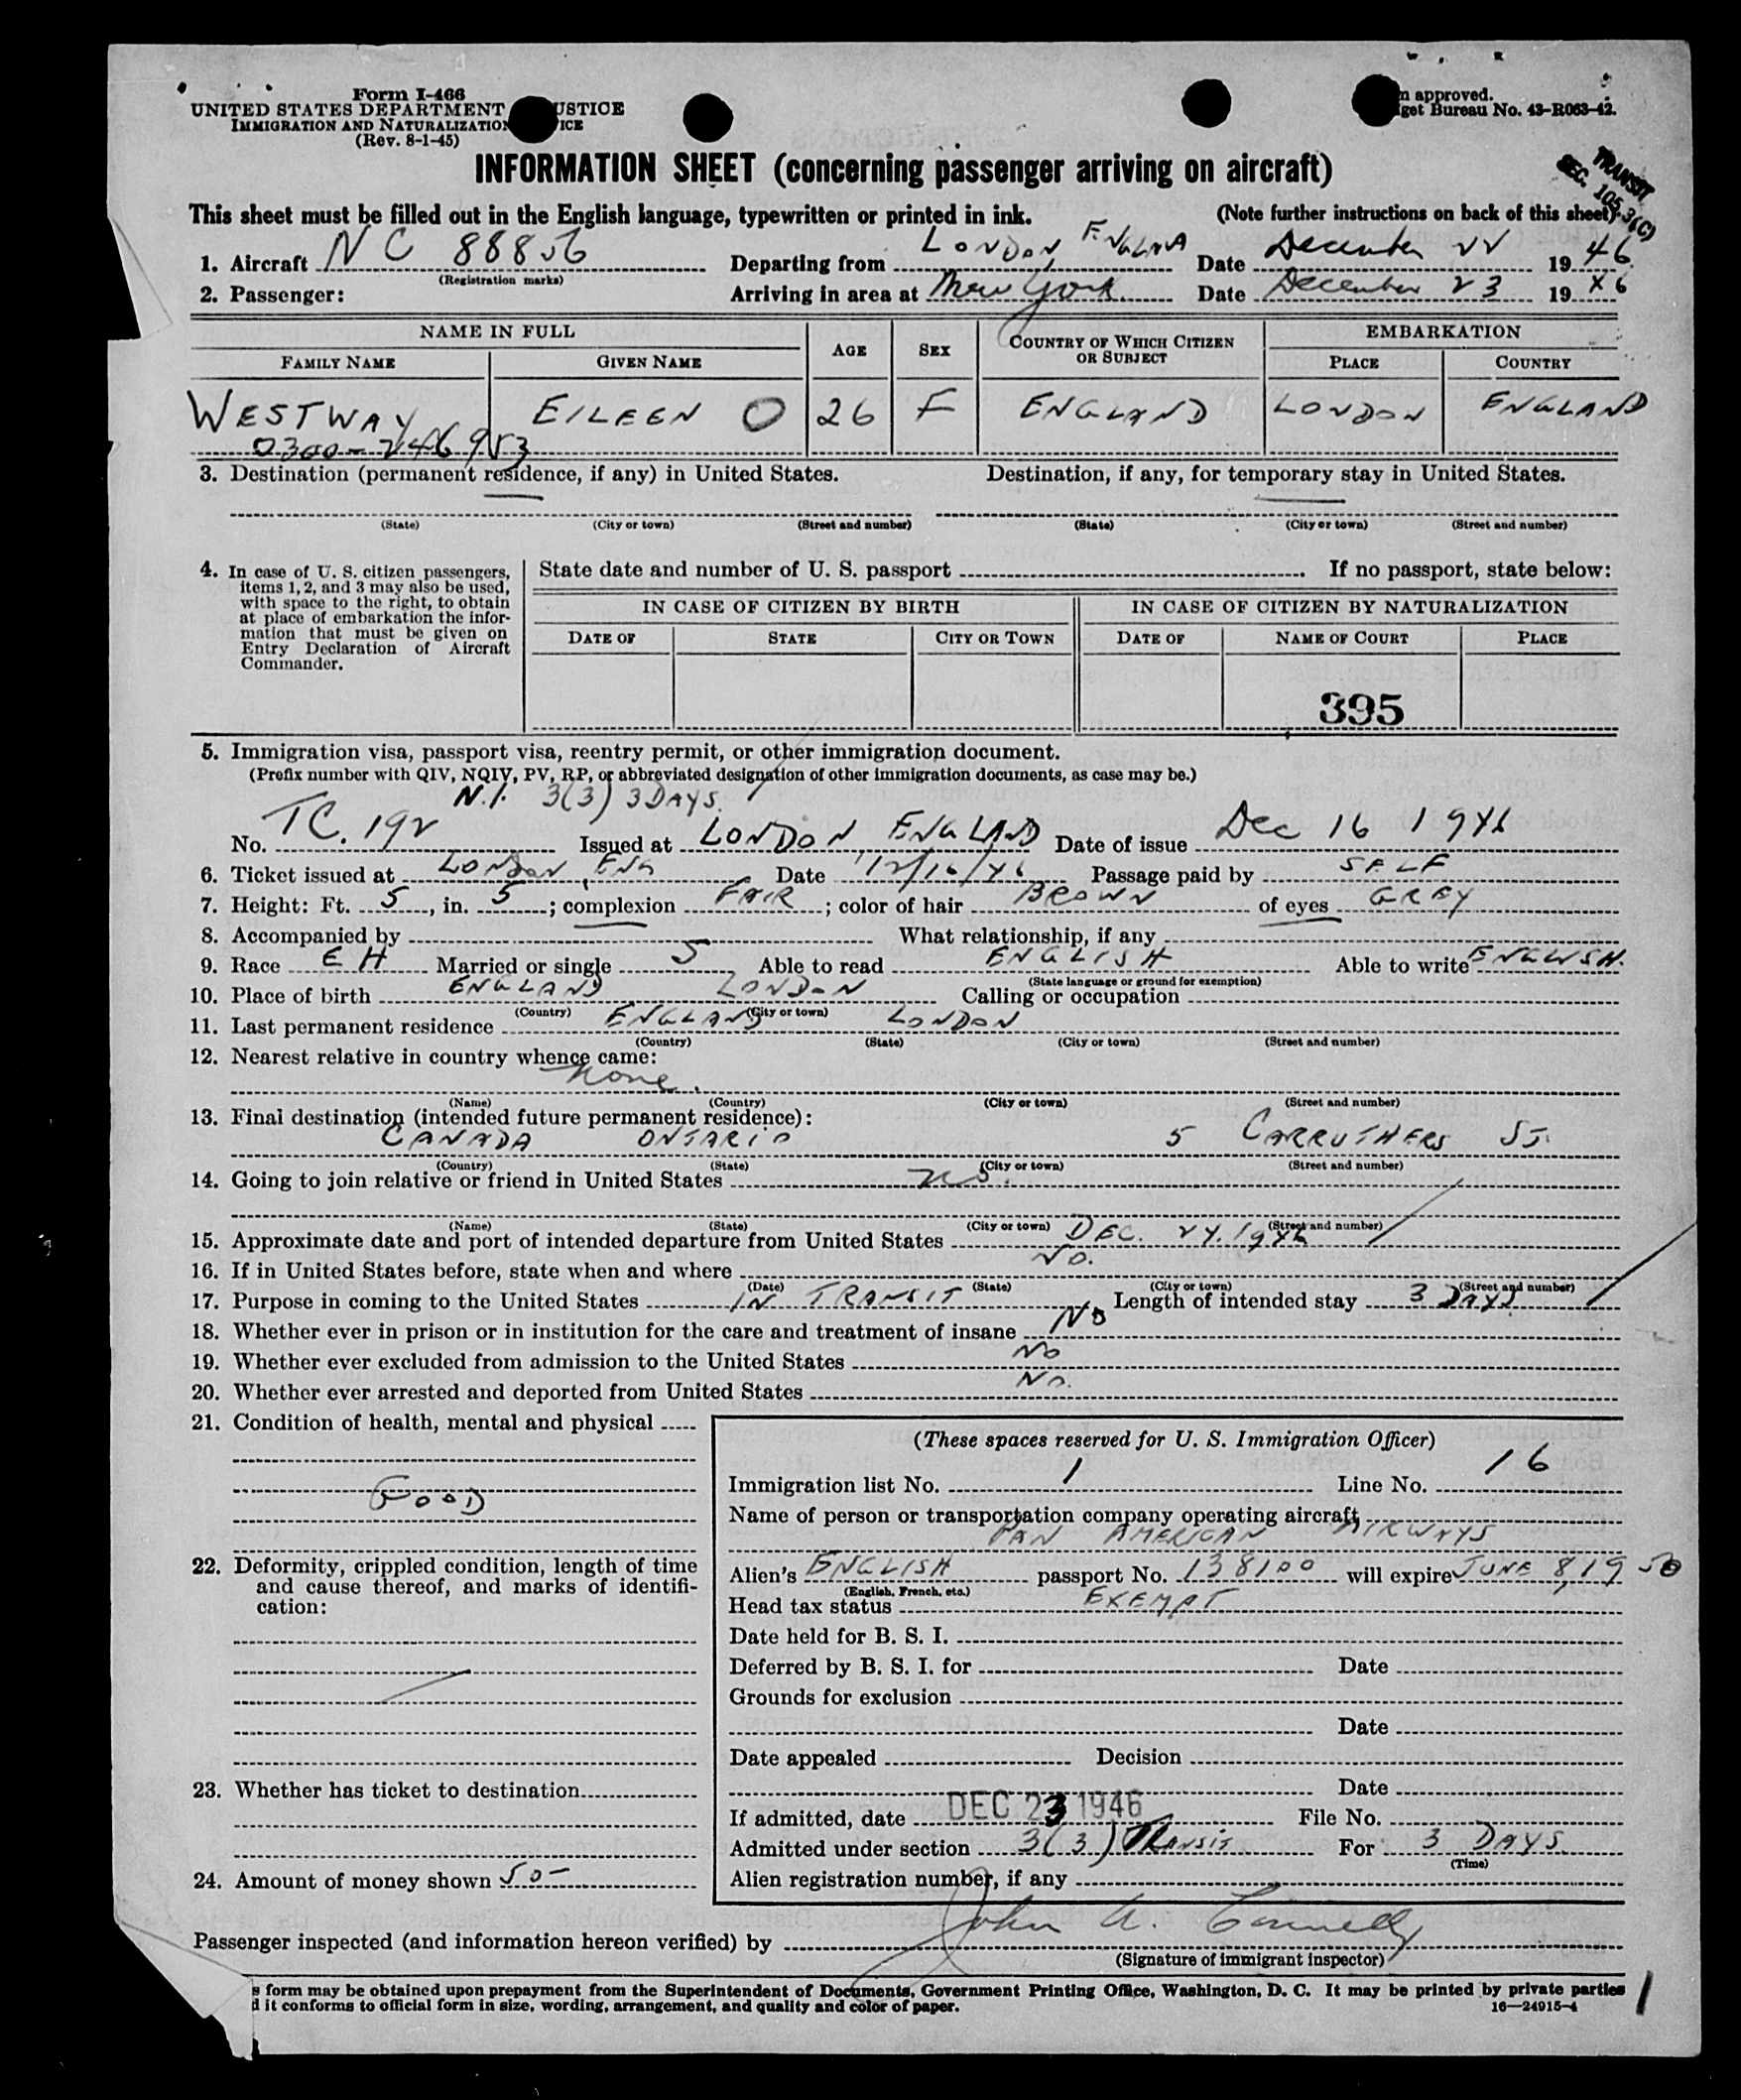 Form I-466
UNITED STATES DEPARTMENT USTICE
IMMIGRATION AND NATURALIZATION ICE
(Rev. 8-1-45)
m approved.
get Bureau No. 43-R063-42.
INFORMATION SHEET (concerning passenger arriving on aircraft)
TRANSIT
SEC. 105.3(C)
This sheet must be filled out in the English language, typewritten or printed in ink. (Note further instructions on back of this sheet)
1. Aircraft NC 88856 Departing from LONDON ENGLAND Date December 22 1946
(Registration marks)
2. Passenger: Arriving in area at New York Date December 23 1946
NAME IN FULL AGE SEX COUNTRY OF WHICH CITIZEN OR SUBJECT EMBARKATION
FAMILY NAME GIVEN NAME PLACE COUNTRY
WESTWAY EILEEN O 26 F ENGLAND LONDON ENGLAND
0300-246953
3. Destination (permanent residence, if any) in United States. Destination, if any, for temporary stay in United States.
(State) (City or town) (Street and number) (State) (City or town) (Street and number)
4. In case of U. S. citizen passengers, items 1, 2, and 3 may also be used, with space to the right, to obtain at place of embarkation the information that must be given on Entry Declaration of Aircraft Commander.
State date and number of U. S. passport If no passport, state below:
IN CASE OF CITIZEN BY BIRTH IN CASE OF CITIZEN BY NATURALIZATION
DATE OF STATE CITY OR TOWN DATE OF NAME OF COURT PLACE
395
5. Immigration visa, passport visa, reentry permit, or other immigration document.
(Prefix number with QIV, NQIV, PV, RP, or abbreviated designation of other immigration documents, as case may be.)
N.I. 3(3) 3 DAYS.
No. TC. 192 Issued at LONDON ENGLAND Date of issue Dec 16 1946
6. Ticket issued at LONDON, ENG Date 12/16/46 Passage paid by SELF
7. Height: Ft. 5, in. 5; complexion FAIR; color of hair BROWN of eyes GREY
8. Accompanied by What relationship, if any
9. Race EH Married or single S Able to read ENGLISH Able to write ENGLISH.
(State language or ground for exemption)
10. Place of birth ENGLAND LONDON Calling or occupation
(Country) (City or town)
11. Last permanent residence ENGLAND LONDON
(Country) (State) (City or town) (Street and number)
12. Nearest relative in country whence came:
None.
(Name) (Country) (City or town) (Street and number)
13. Final destination (intended future permanent residence):
CANADA ONTARIO 5 CARRUTHERS ST.
(Country) (State) (City or town) (Street and number)
14. Going to join relative or friend in United States no.
(Name) (State) (City or town) (Street and number)
15. Approximate date and port of intended departure from United States DEC. 24. 1946
16. If in United States before, state when and where NO.
(Date) (State) (City or town) (Street and number)
17. Purpose in coming to the United States IN TRANSIT Length of intended stay 3 DAYS
18. Whether ever in prison or in institution for the care and treatment of insane No
19. Whether ever excluded from admission to the United States No
20. Whether ever arrested and deported from United States No.
21. Condition of health, mental and physical
GOOD
22. Deformity, crippled condition, length of time and cause thereof, and marks of identification:
23. Whether has ticket to destination
24. Amount of money shown 50-
(These spaces reserved for U. S. Immigration Officer)
Immigration list No. 1 Line No. 16
Name of person or transportation company operating aircraft
PAN AMERICAN AIRWAYS
Alien's ENGLISH passport No. 138100 will expire JUNE 8, 1950
(English, French, etc.)
Head tax status EXEMPT
Date held for B. S. I.
Deferred by B. S. I. for Date
Grounds for exclusion
Date
Date appealed Decision
Date
If admitted, date DEC 23 1946 File No.
Admitted under section 3(3) TRANSIT For 3 DAYS.
(Time)
Alien registration number, if any
Passenger inspected (and information hereon verified) by John A. Connelly
(Signature of immigrant inspector)
s form may be obtained upon prepayment from the Superintendent of Documents, Government Printing Office, Washington, D. C. It may be printed by private parties
d it conforms to official form in size, wording, arrangement, and quality and color of paper.
16—24915-4